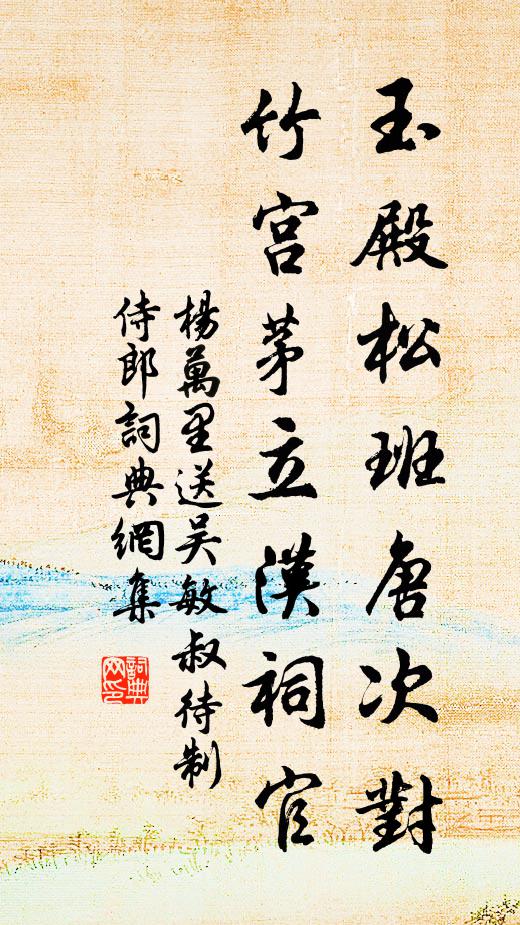 玉殿松班唐次對
竹宮茅立漢祠官
楊萬里送吳敏叔待制
侍郎詞典網集
詞典
网印